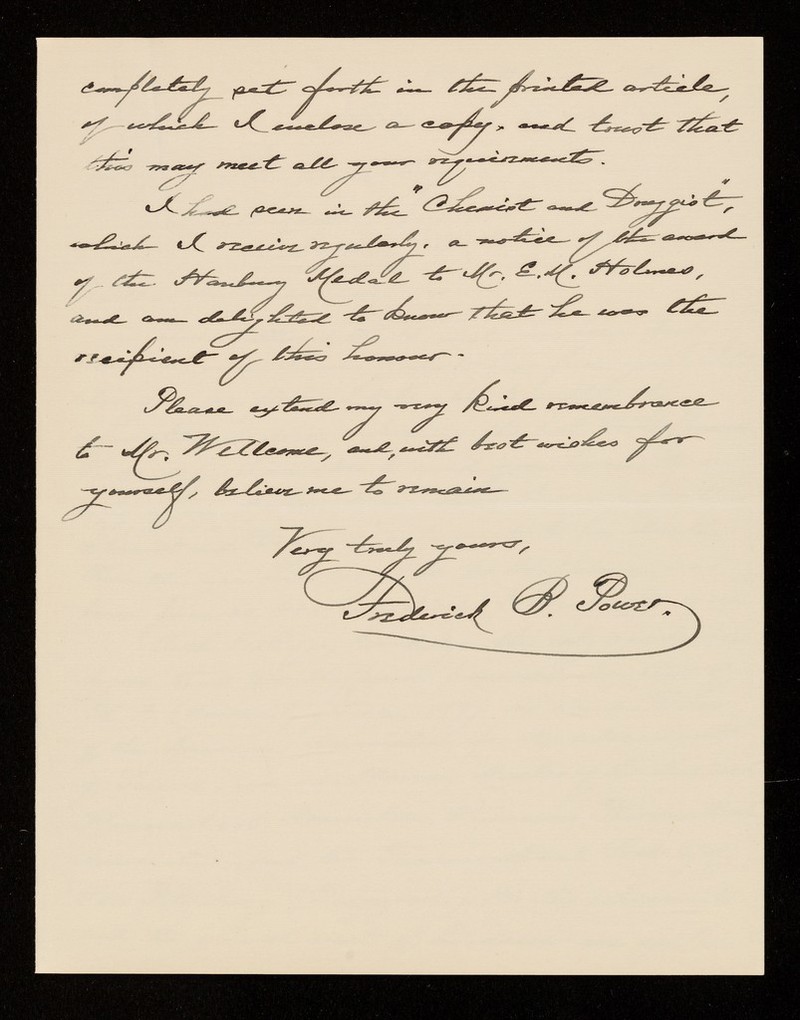 completely set forth in the printed article,
of which I enclose a copy, and trust that
this may meet all your requirements.
I had seen in the "Chemist and Druggist",
which I receive regularly, a notice of the award
of the Hanbury Medal to Mr. E. M. Holmes,
and am delighted to know that he was the
recipient of this honour.
Please extend my very kind remembrance
to Mr. Wellcome, and, with best wishes for
yourself, believe me to remain
Very truly yours,
Frederick B. Power.